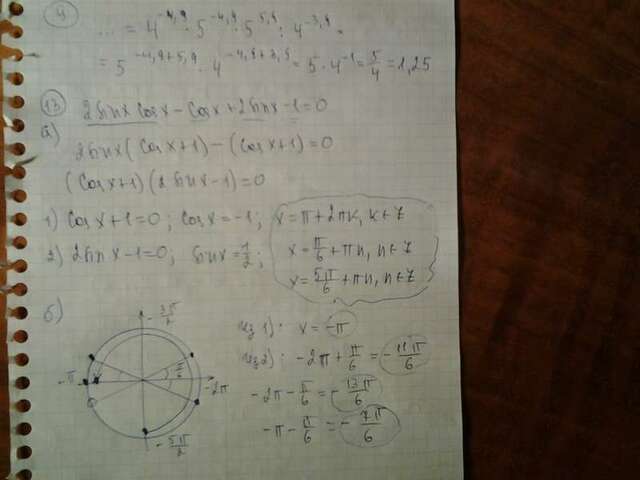 9
... = 4^{-4,9} · 5^{-4,9} · 5^{5,9} : 4^{-3,9} =
= 5^{-4,9+5,9} · 4^{-4,9+3,9} = 5 · 4^{-1} = 5/4 = 1,25
13
а) 2sinx cosx - cosx + 2sinx - 1 = 0
2sinx(cosx+1) - (cosx+1) = 0
(cosx+1)(2sinx-1) = 0
1) cosx+1=0; cosx=-1; x=π+2πk, k∈Z
2) 2sinx-1=0; sinx=1/2; x=π/6+πn, n∈Z
x=5π/6+πn, n∈Z
б)
-3π/2
-π
π/6
-2π
-5π/2
из 1): x = -π
из 2): -2π + π/6 = -11π/6
-2π - π/6 = -13π/6
-π - π/6 = -7π/6